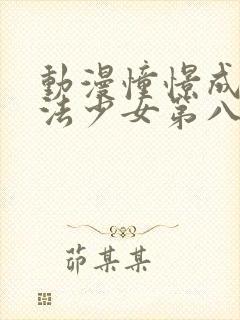 動漫憧憬成
法少女第八
茆某某